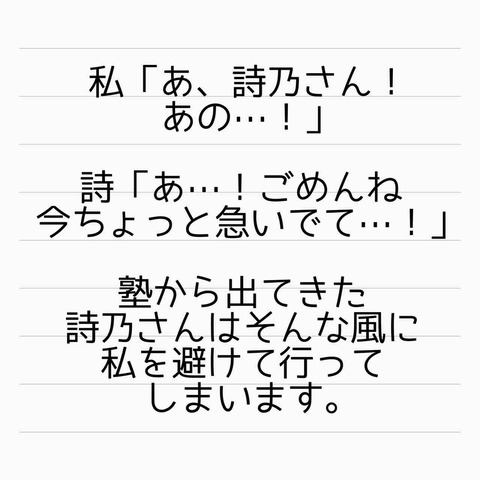 私「あ、詩乃さん！
あの…！」
詩「あ…！ごめんね
今ちょっと急いでて…！」
塾から出てきた
詩乃さんはそんな風に
私を避けて行って
しまいます。